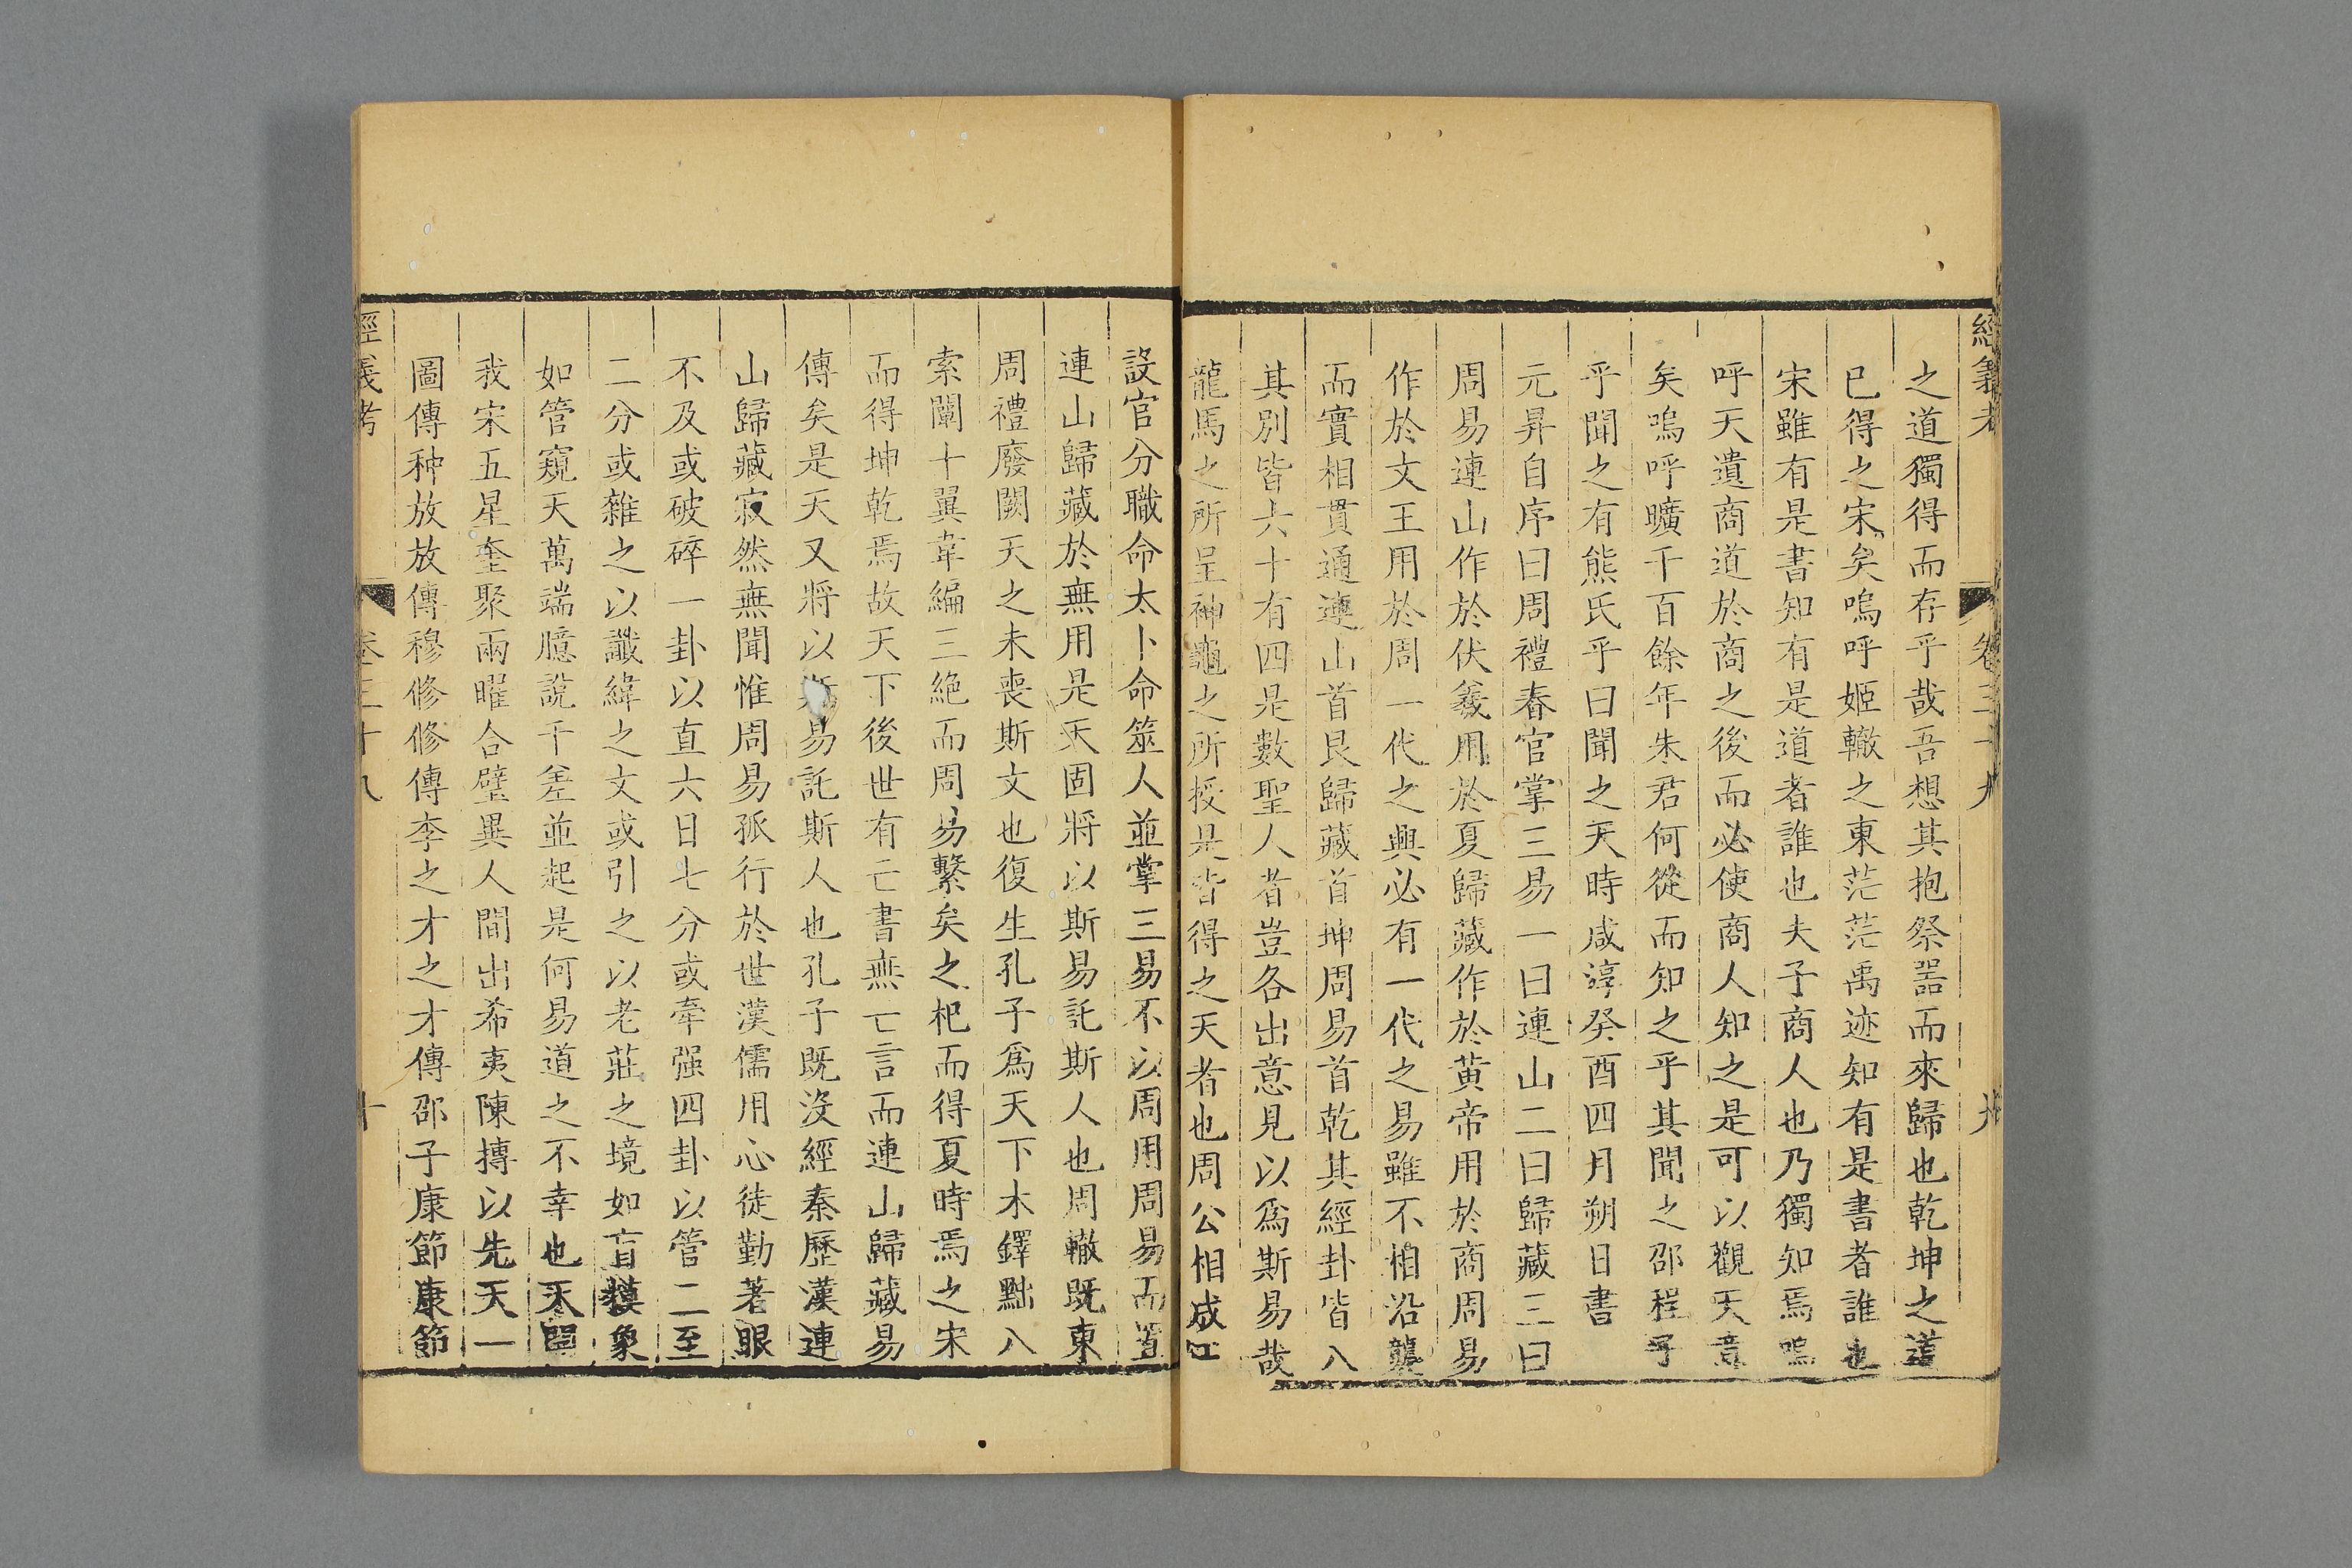 經義考 卷三十八 九
之道獨得而存乎哉吾想其抱祭噐而來歸也乾坤之道
已得之宋矣嗚呼姬轍之東茫茫禹迹知有是書者誰也
宋雖有是書知有是道者誰也夫子商人也乃獨知焉嗚
呼天遺商道於商之後而必使商人知之是可以觀天意
矣嗚呼曠千百餘年朱君何從而知之乎其聞之邵程子
乎聞之有熊氏乎曰聞之天時咸淳癸酉四月朔日書
元昇自序曰周禮春官掌三易一曰連山二曰歸藏三曰
周易連山作於伏羲用於夏歸藏作於黄帝用於商周易
作於文王用於周一代之興必有一代之易雖不相沿襲
而實相貫通連山首艮歸藏首坤周易首乾其經卦皆八
其別皆六十有四是數聖人者豈各出意見以爲斯易哉
龍馬之所呈神龜之所授是皆得之天者也周公相成王
設官分職命太卜命筮人並掌三易不以周用周易而置
連山歸藏於無用是天固將以斯易託斯人也周轍既東
周禮廢闕天之未喪斯文也復生孔子爲天下木鐸黜八
索闡十翼韋編三絶而周易繫矣之杞而得夏時焉之宋
而得坤乾焉故天下後世有亡書無亡言而連山歸藏易
傳矣是天又將以斯易託斯人也孔子既沒經秦歷漢連
山歸藏寂然無聞惟周易孤行於世漢儒用心徒勤著眼
不及或破碎一卦以直六日七分或牽强四卦以管二至
二分或雜之以讖緯之文或引之以老莊之境如盲摸象
如管窺天萬端臆說千差並起是何易道之不幸也天開
我宋五星奎聚兩曜合璧異人間出希夷陳摶以先天一
圖傳种放放傳穆修修傳李之才之才傳邵子康節康節
經義考 卷三十八 十